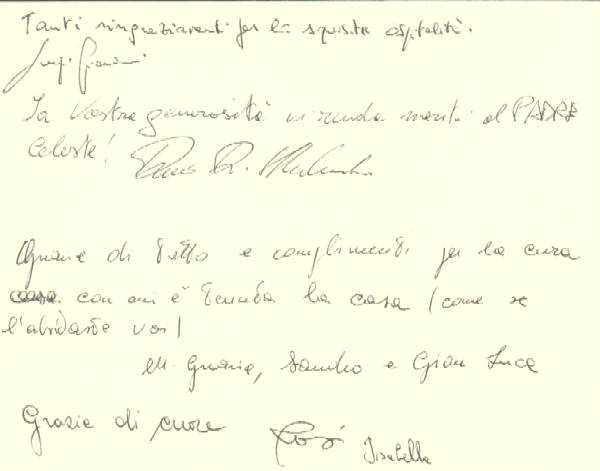 Tanti ringraziamenti per la squisita ospitalità.
Luigi
La Vostra generosità vi renda merito al PADRE
Celeste!
Grazie di tutto e complimenti per la cura
con cui è tenuta la casa (come se
l'abitaste voi)
M. Grazia, Sandro e Gian Luca
Grazie di cuore
Isabella